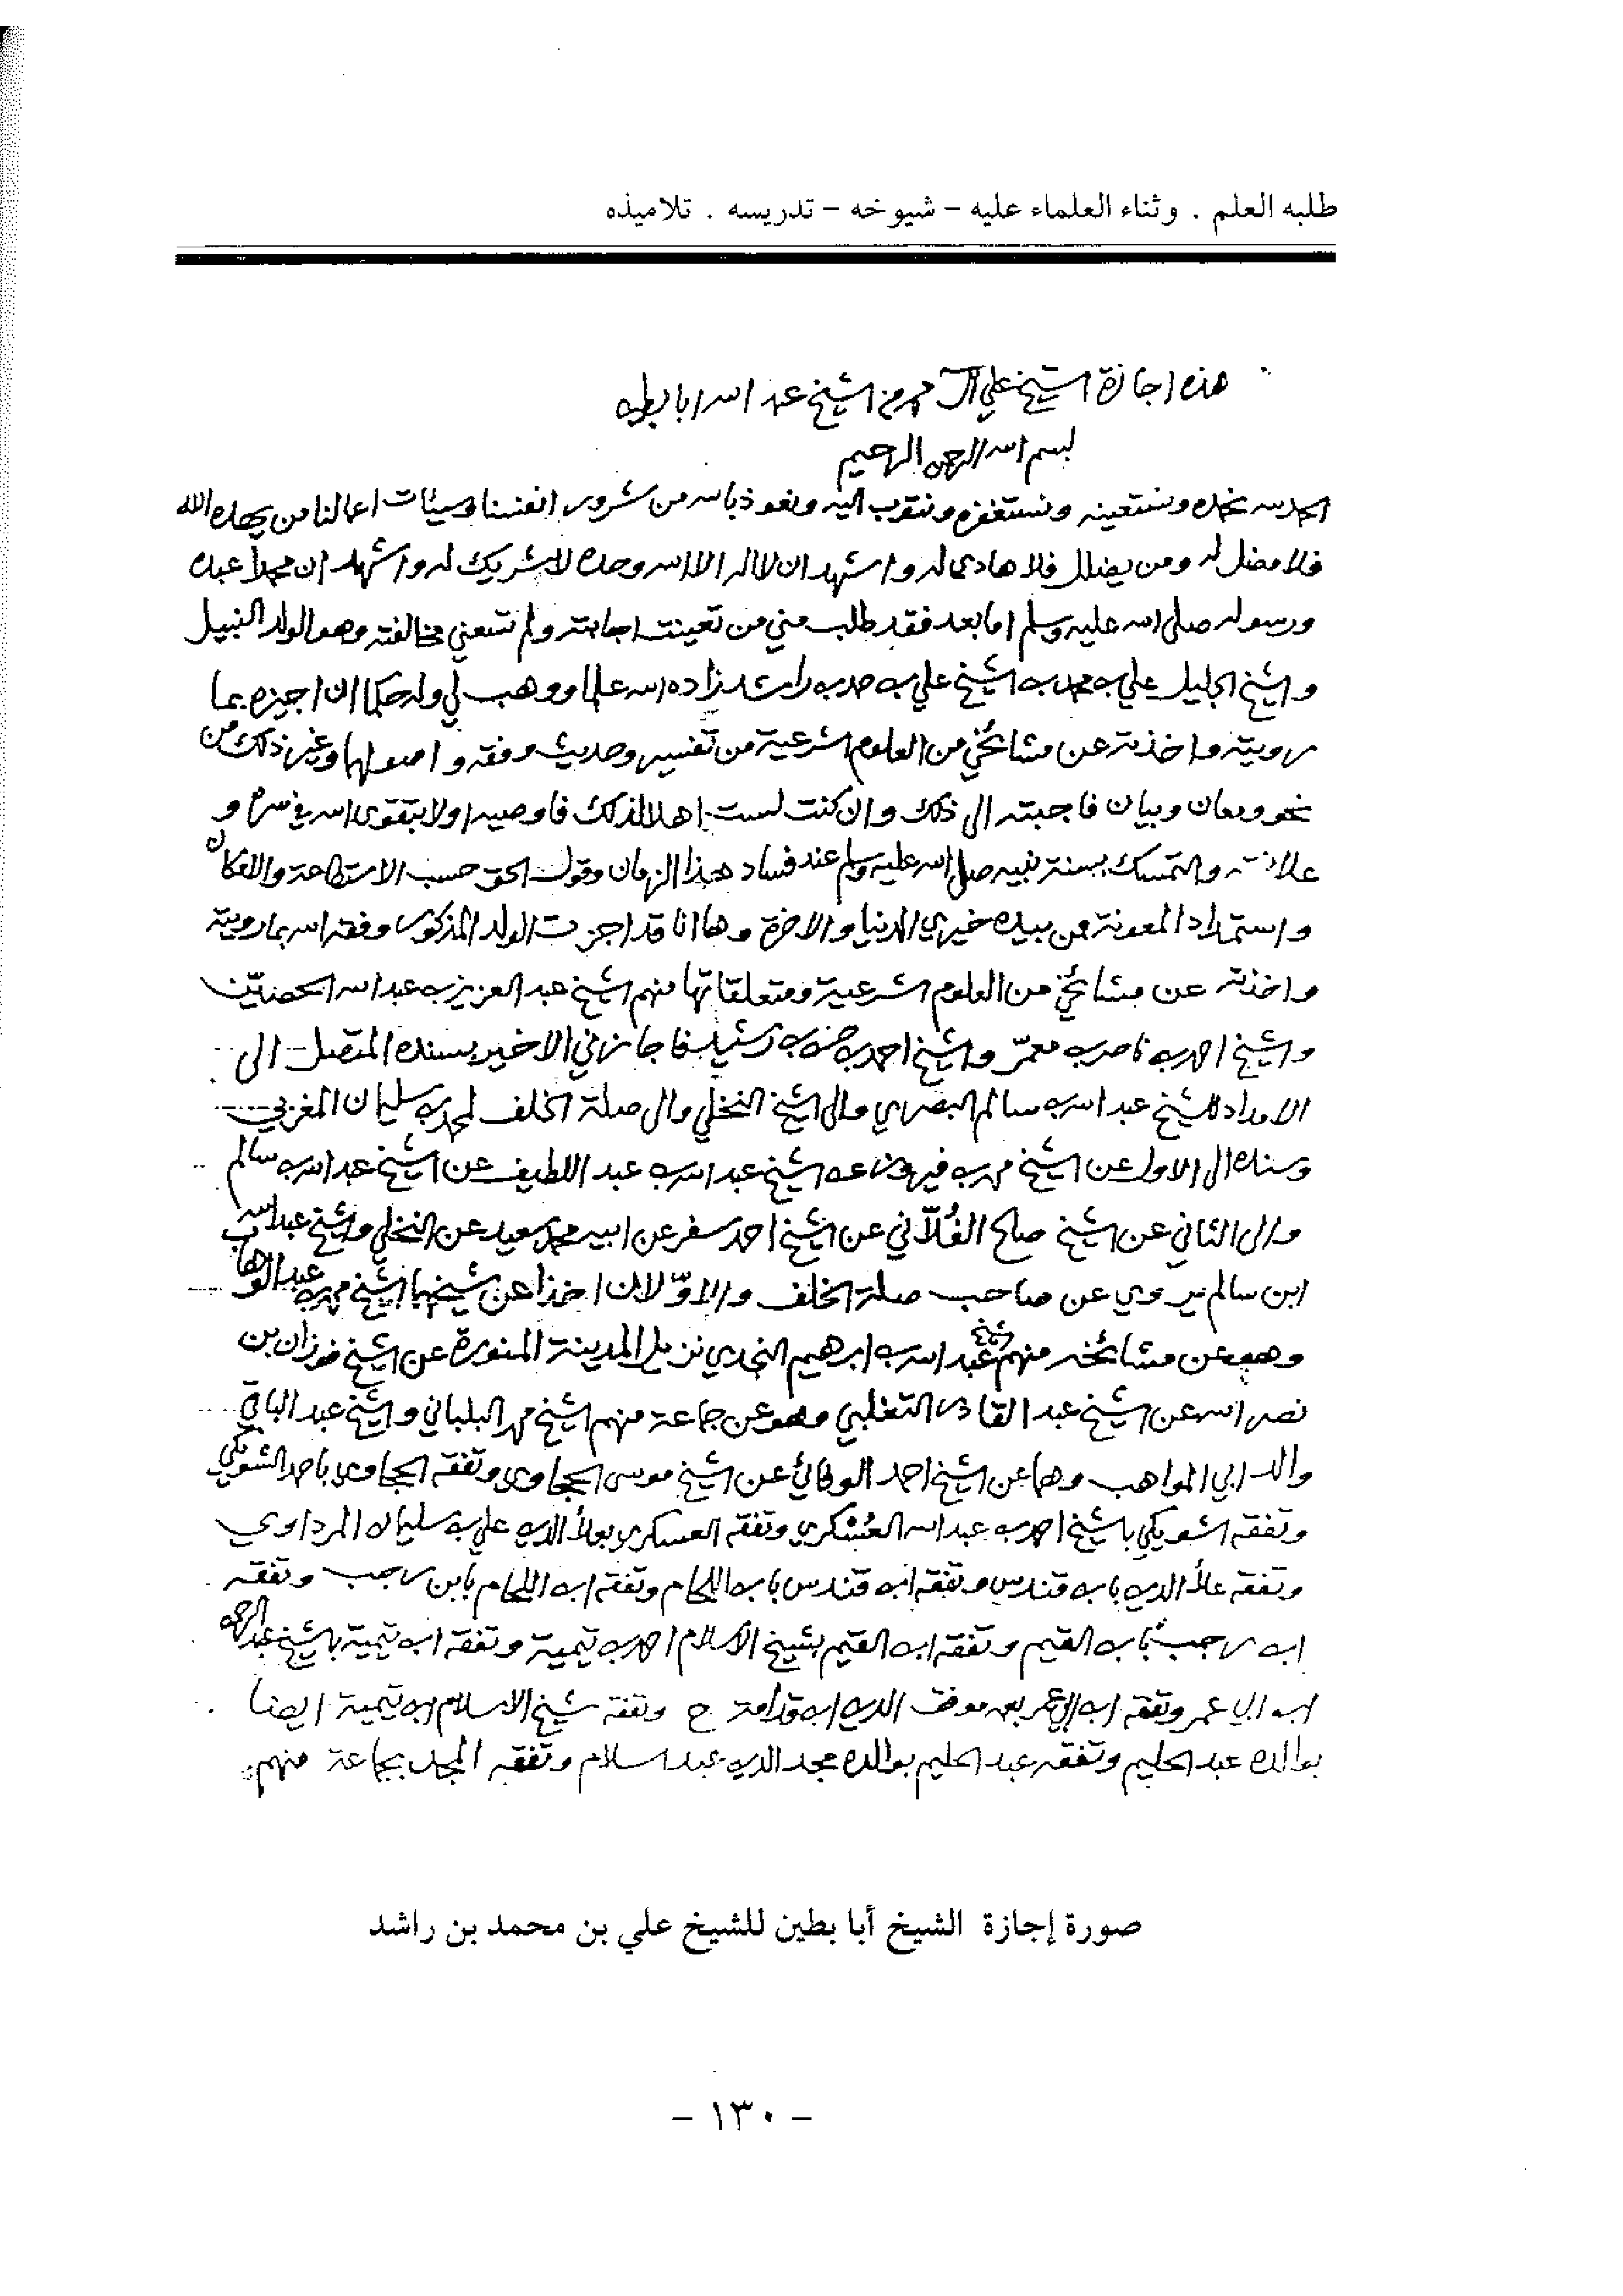 طلبه العلم . وثناء العلماء عليه - شيوخه - تدريسه . تلاميذه
هذه اجازة الشيخ علي آل محمد من الشيخ عبد الله ابا بطين
بسم الله الرحمن الرحيم
الحمد لله نحمده ونستعينه ونستغفره ونتوب اليه ونعوذ بالله من شرور انفسنا وسيئات اعمالنا من يهده الله
فلا مضل له ومن يضلل فلا هادي له واشهد ان لا اله الا الله وحده لا شريك له واشهد ان محمدا عبده
ورسوله صلى الله عليه وسلم اما بعد فقد طلب مني من تعينت اجابته ولم تسعني مخالفته وهو الولد النبيل
والشيخ الجليل علي بن محمد بن الشيخ علي بن حمد بن راشد زاده الله علما ووهب لي وله حكما ان اجيزه بما
رويته واخذته عن مشائخي من العلوم الشرعية من تفسير وحديث وفقه واصولها وغير ذلك من
نحو ومعان وبيان فاجبته الى ذلك وان كنت لست اهلا لذلك فاوصيه اولا بتقوى الله في سره و
علانيته والتمسك بسنة نبيه صلى الله عليه وسلم عند فساد هذا الزمان وقول الحق حسب الاستطاعة والامكان
واستمداد المعونة من بيده خيري الدنيا والاخرة وها انا قد اجزت الولد المذكور وفقه الله بما رويته
واخذته عن مشائخي من العلوم الشرعية ومتعلقاتها منهم الشيخ عبد العزيز بن عبد الله الحصيّن
والشيخ احمد بن ناصر بن معمّر والشيخ احمد بن حسن بن رشيد فاجازني الاخير بسنده المتصل الى
الامداد للشيخ عبد الله بن سالم البصري والى الشيخ النخلي والى صلة الخلف لمحمد بن سليمان المغربي
وسنده الى الاول عن الشيخ محمد بن فيروز عن الشيخ عبد الله بن عبد اللطيف عن الشيخ عبد الله بن سالم
والى الثاني عن الشيخ صالح الفُلّاني عن الشيخ احمد سفر عن ابيه محمد سعيد عن النخلي والشيخ عبد الله
ابن سالم يروي عن صاحب صلة الخلف والاوّلان اخذا عن شيخهما الشيخ محمد بن عبد الوهاب
وهو عن مشائخه منهم الشيخ عبد الله بن ابرهيم النجدي نزيل المدينة المنورة عن الشيخ فوزان بن
نصر الله عن الشيخ عبد القادر التغلبي وهو عن جماعة منهم الشيخ محمد البلباني والشيخ عبد الباقي
والد ابي المواهب وهما عن الشيخ احمد الوفائي عن الشيخ موسى الحجاوي وتفقه الحجاوي باحمد الشويكي
وتفقه الشويكي بالشيخ احمد بن عبد الله العُسْكري وتفقه العسكري بعلأ الدين علي بن سليمان المرداوي
وتفقه علأ الدين بابن قندس وتفقه ابن قندس بابن اللحام وتفقه ابن اللحام بابن رجب وتفقه
ابن رجب بابن القيم وتفقه ابن القيم بشيخ الاسلام احمد بن تيمية وتفقه ابن تيمية بالشيخ عبد الرحمن
ابن ابي عمر وتفقه ابن ابي عمر بعمه موفق الدين ابن قدامة ح وتفقه شيخ الاسلام ابن تيمية ايضا
بوالده عبد الحليم وتفقه عبد الحليم بوالده مجد الدين عبد السلام وتفقه المجد بجماعة منهم
صورة إجازة الشيخ أبا بطين للشيخ علي بن محمد بن راشد
- ١٣٠ -